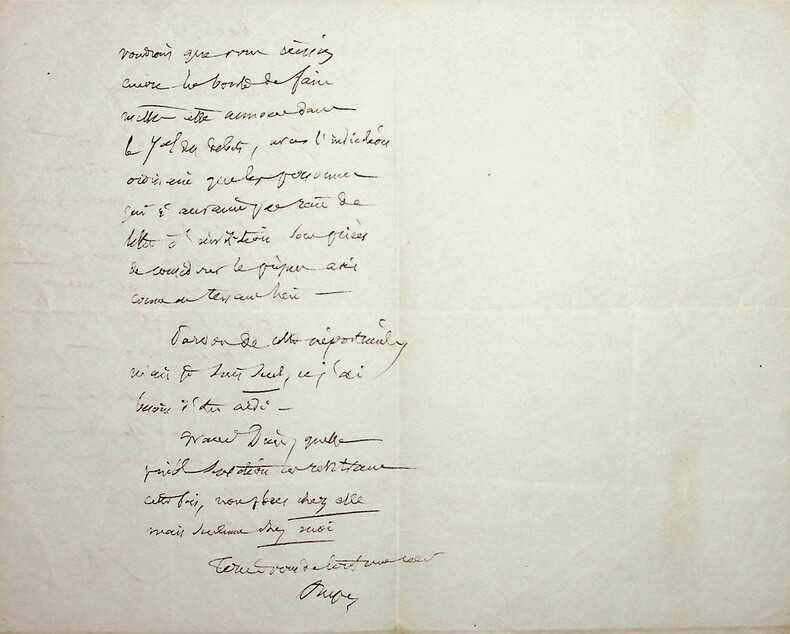 voudrais que vous eussiez
encore la bonté de faire
mettre cette annonce dans
le Jal des débats, avec l'indication
ordinaire que les personnes
qui n'auraient pas reçu de
lettre d'invitation sont priées
de considérer le présent avis
comme en tenant lieu —
Pardon de cette importunité,
mais je suis seul, et j'ai
besoin d'être aidé —
Grand Dieu, quelle
pénible
cette fois, non plus chez elle
mais seulement chez moi
Tout à vous de tout mon cœur